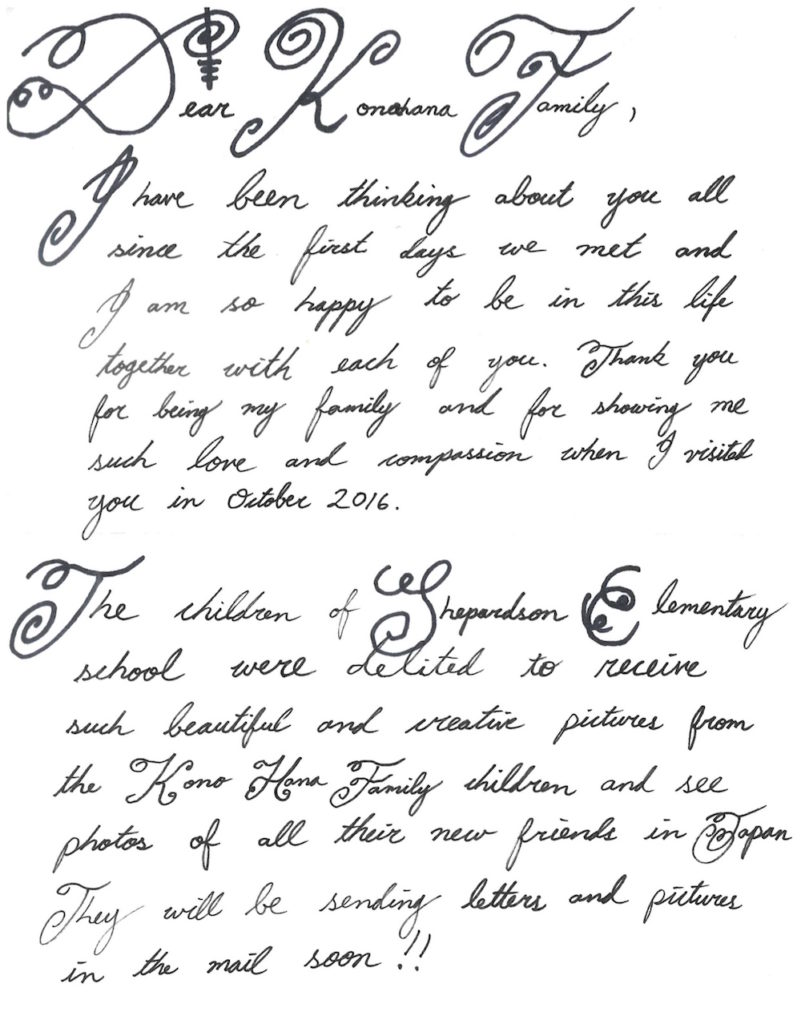 Dear Konohana Family,
I have been thinking about you all
since the first days we met and
I am so happy to be in this life
together with each of you. Thank you
for being my family and for showing me
such love and compassion when I visited
you in October 2016.
The children of Shepardson Elementary
school were delited to receive
such beautiful and creative pictures from
the Kono Hana Family children and see
photos of all their new friends in Japan
They will be sending letters and pictures
in the mail soon!!